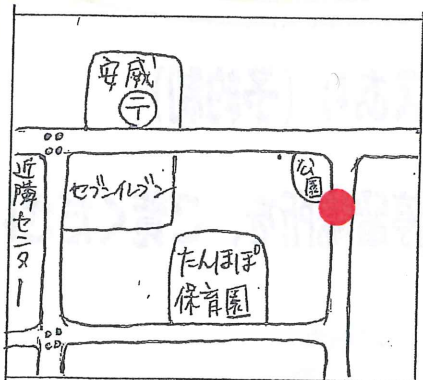 安威
〒
近隣センター
セブンイレブン
公園
たんぽぽ
保育園